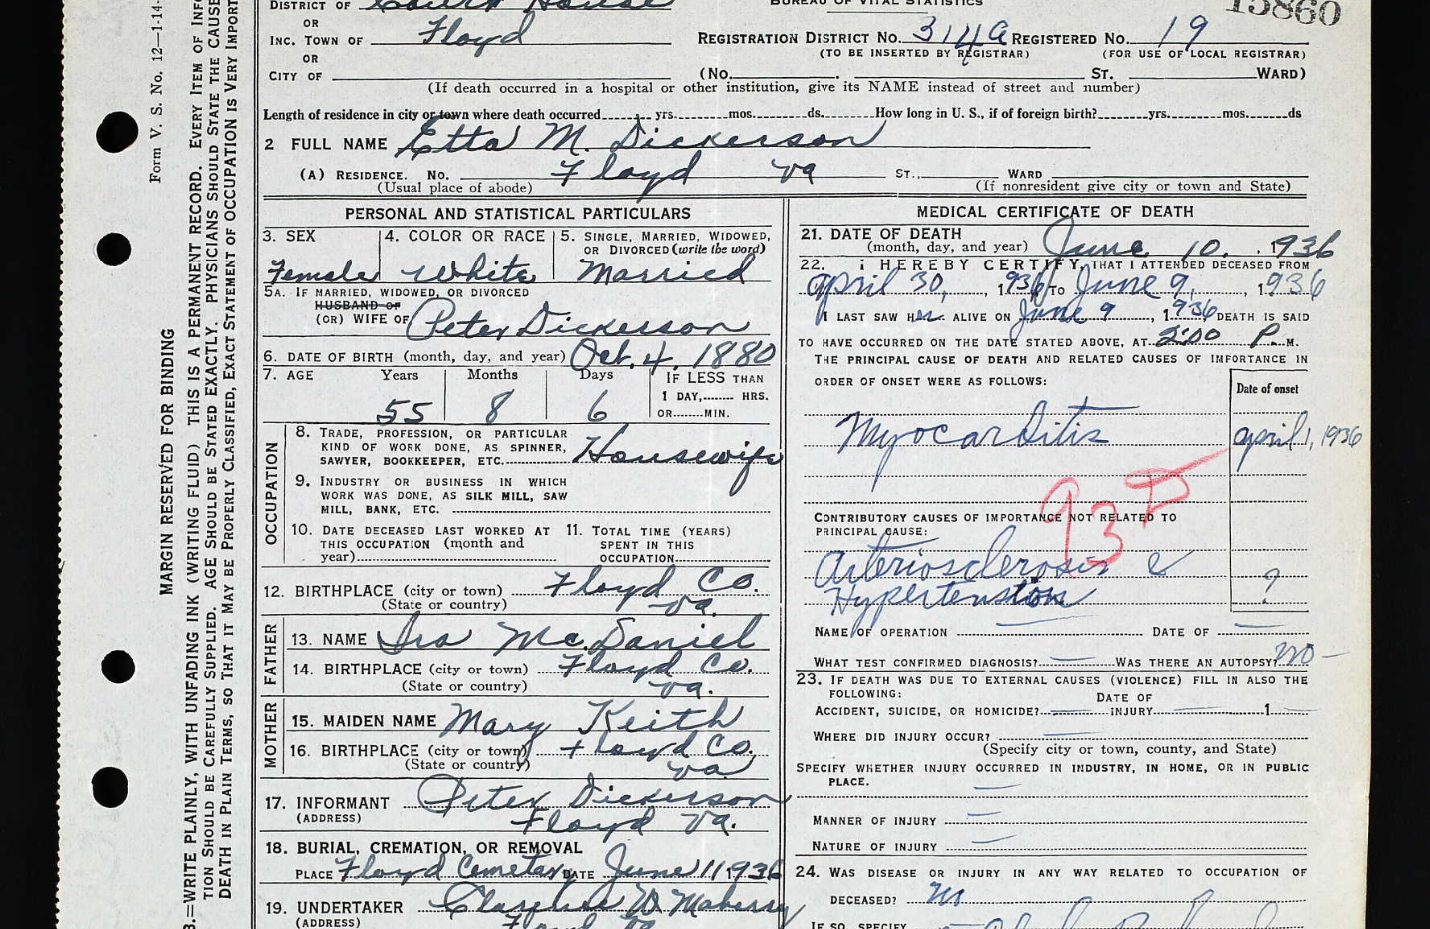 DISTRICT OF Court House
BUREAU OF VITAL STATISTICS
15860
OR
INC. TOWN OF Floyd
REGISTRATION DISTRICT NO. 314a REGISTERED NO. 19
(TO BE INSERTED BY REGISTRAR) (FOR USE OF LOCAL REGISTRAR)
OR
CITY OF (No. ST. WARD)
(If death occurred in a hospital or other institution, give its NAME instead of street and number)
Length of residence in city or town where death occurred yrs. mos. ds. How long in U. S., if of foreign birth? yrs. mos. ds
2 FULL NAME Etta M. Dickerson
(A) RESIDENCE. No. Floyd Va ST., WARD
(Usual place of abode) (If nonresident give city or town and State)
PERSONAL AND STATISTICAL PARTICULARS
3. SEX 4. COLOR OR RACE 5. SINGLE, MARRIED, WIDOWED,
OR DIVORCED (write the word)
Female White Married
5A. IF MARRIED, WIDOWED, OR DIVORCED
HUSBAND OF
(OR) WIFE OF Peter Dickerson
6. DATE OF BIRTH (month, day, and year) Oct. 4, 1880
7. AGE Years Months Days IF LESS THAN
1 DAY, HRS.
55 8 6 OR MIN.
OCCUPATION
8. TRADE, PROFESSION, OR PARTICULAR
KIND OF WORK DONE, AS SPINNER,
SAWYER, BOOKKEEPER, ETC. Housewife
9. INDUSTRY OR BUSINESS IN WHICH
WORK WAS DONE, AS SILK MILL, SAW
MILL, BANK, ETC.
10. DATE DECEASED LAST WORKED AT 11. TOTAL TIME (YEARS)
THIS OCCUPATION (month and SPENT IN THIS
year) OCCUPATION
12. BIRTHPLACE (city or town) Floyd Co.
(State or country) Va.
FATHER
13. NAME Ira McDaniel
14. BIRTHPLACE (city or town) Floyd Co.
(State or country) Va.
MOTHER
15. MAIDEN NAME Mary Keith
16. BIRTHPLACE (city or town) Floyd Co.
(State or country) Va
17. INFORMANT Peter Dickerson
(ADDRESS) Floyd Va.
18. BURIAL, CREMATION, OR REMOVAL
PLACE Floyd Cemetery DATE June 11 1936
19. UNDERTAKER W. Maberry
(ADDRESS) Floyd Va
MEDICAL CERTIFICATE OF DEATH
21. DATE OF DEATH
(month, day, and year) June 10, 1936
22. I HEREBY CERTIFY, THAT I ATTENDED DECEASED FROM
April 30, 1936 TO June 9, 1936
I LAST SAW Her ALIVE ON June 9, 1936 DEATH IS SAID
TO HAVE OCCURRED ON THE DATE STATED ABOVE, AT 2:00 P. M.
THE PRINCIPAL CAUSE OF DEATH AND RELATED CAUSES OF IMPORTANCE IN
ORDER OF ONSET WERE AS FOLLOWS: Date of onset
Myocarditis April 1, 1936
93
CONTRIBUTORY CAUSES OF IMPORTANCE NOT RELATED TO
PRINCIPAL CAUSE:
Arteriosclerosis c
Hypertension ?
NAME OF OPERATION DATE OF
WHAT TEST CONFIRMED DIAGNOSIS? WAS THERE AN AUTOPSY? no
23. IF DEATH WAS DUE TO EXTERNAL CAUSES (VIOLENCE) FILL IN ALSO THE
FOLLOWING: DATE OF
ACCIDENT, SUICIDE, OR HOMICIDE? INJURY 1
WHERE DID INJURY OCCUR?
(Specify city or town, county, and State)
SPECIFY WHETHER INJURY OCCURRED IN INDUSTRY, IN HOME, OR IN PUBLIC
PLACE.
MANNER OF INJURY
NATURE OF INJURY
24. WAS DISEASE OR INJURY IN ANY WAY RELATED TO OCCUPATION OF
DECEASED? no
IF SO, SPECIFY
Form V. S. No. 12—1-14-
MARGIN RESERVED FOR BINDING
B.=WRITE PLAINLY, WITH UNFADING INK (WRITING FLUID) THIS IS A PERMANENT RECORD. EVERY ITEM OF INFO
TION SHOULD BE CAREFULLY SUPPLIED. AGE SHOULD BE STATED EXACTLY. PHYSICIANS SHOULD STATE THE CAUSE
DEATH IN PLAIN TERMS, SO THAT IT MAY BE PROPERLY CLASSIFIED, EXACT STATEMENT OF OCCUPATION IS VERY IMPORT